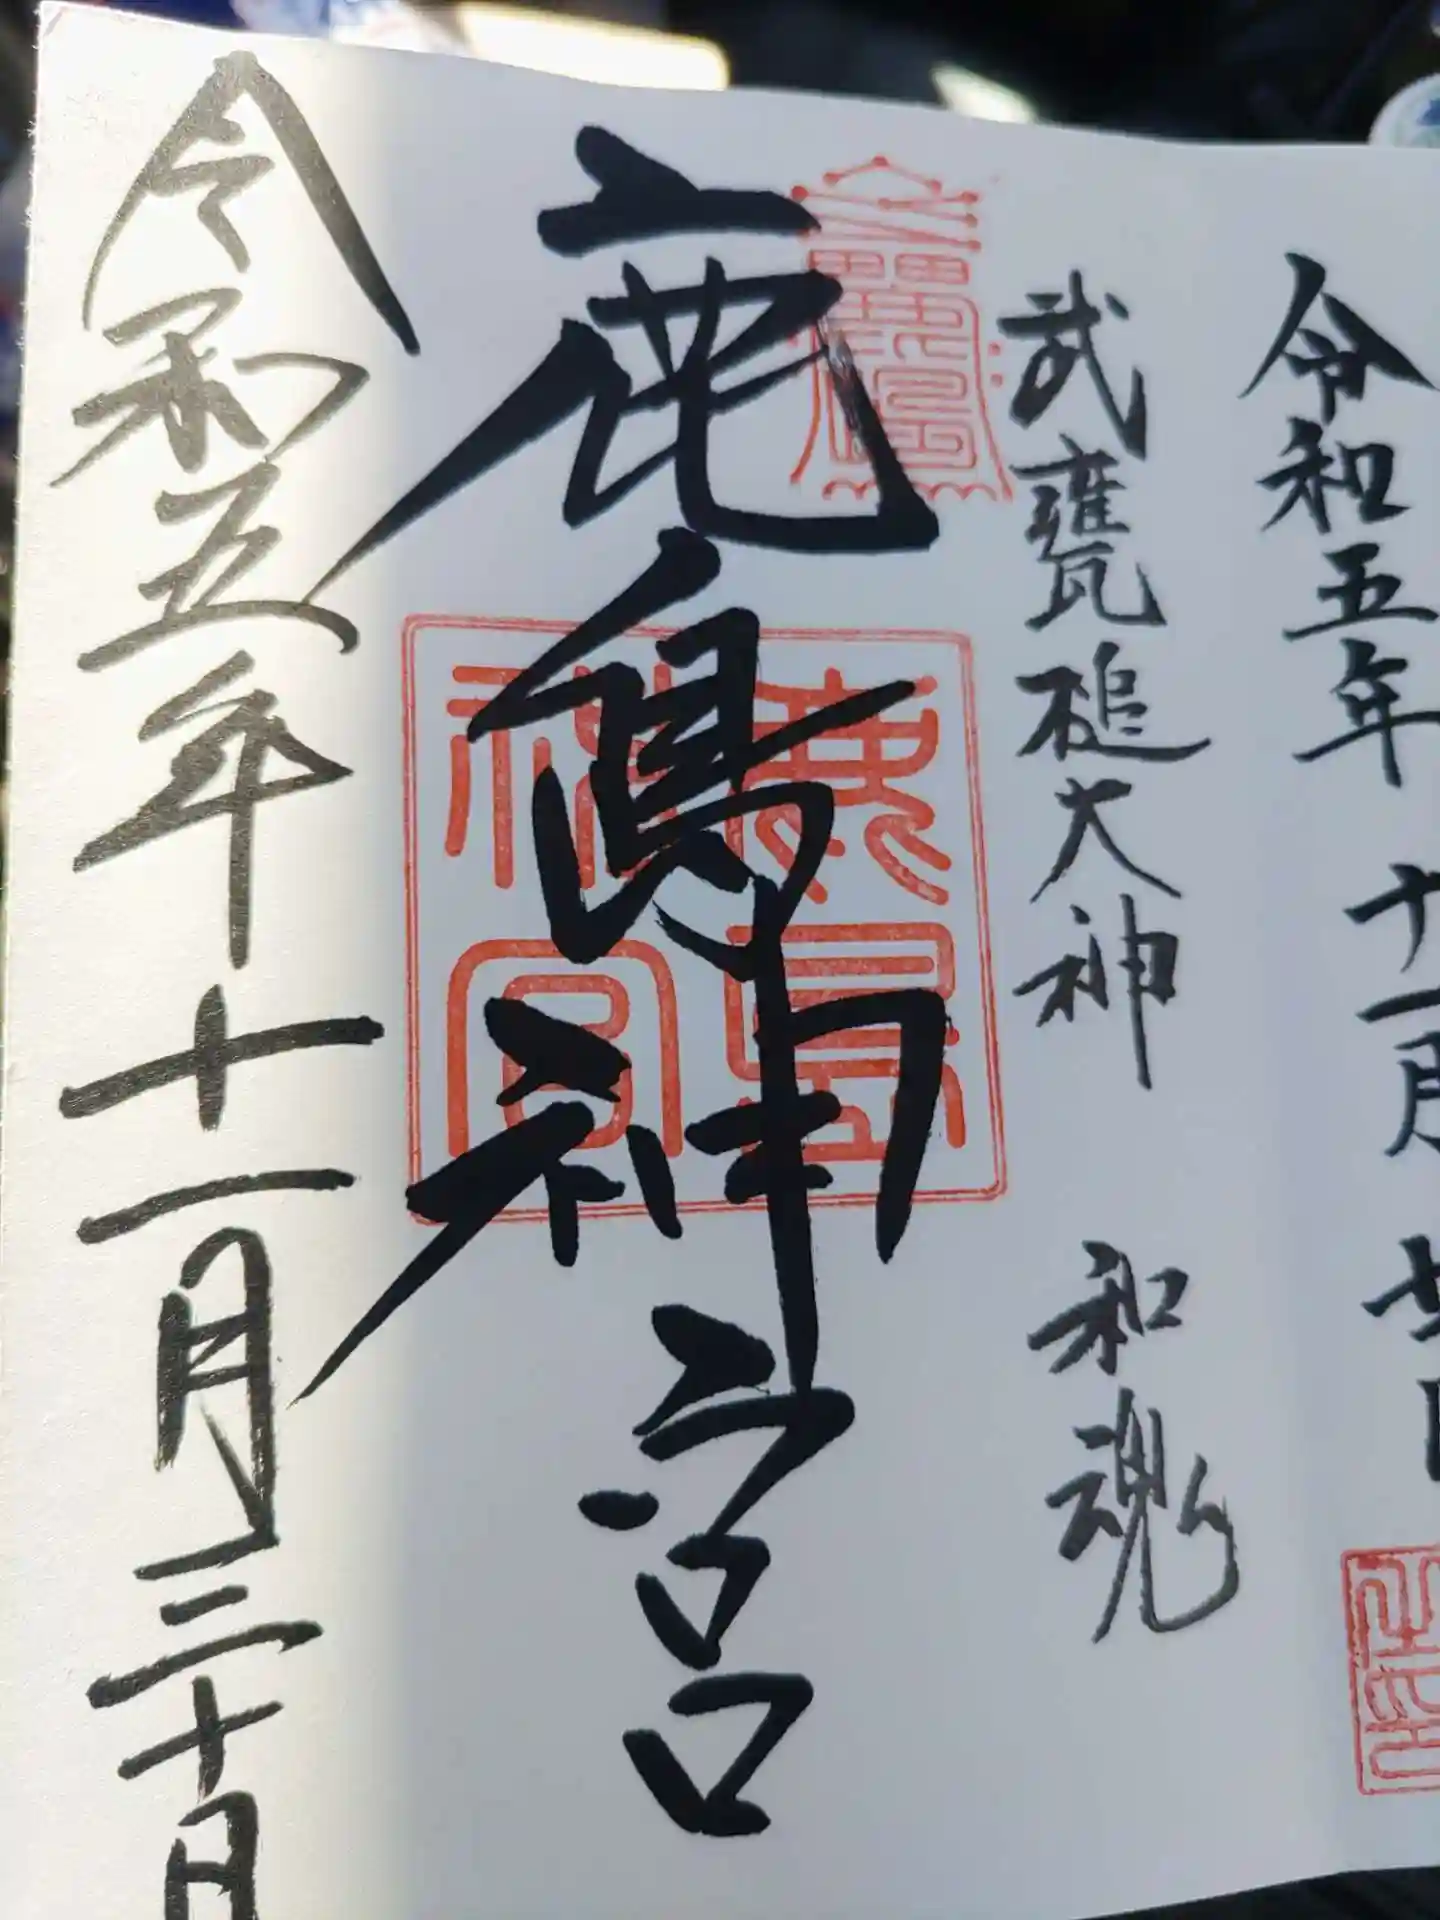 令和五年 十一月 廿
武甕槌大神 和魂
鹿島神宮
鹿島神宮
令和五年十一月三十日